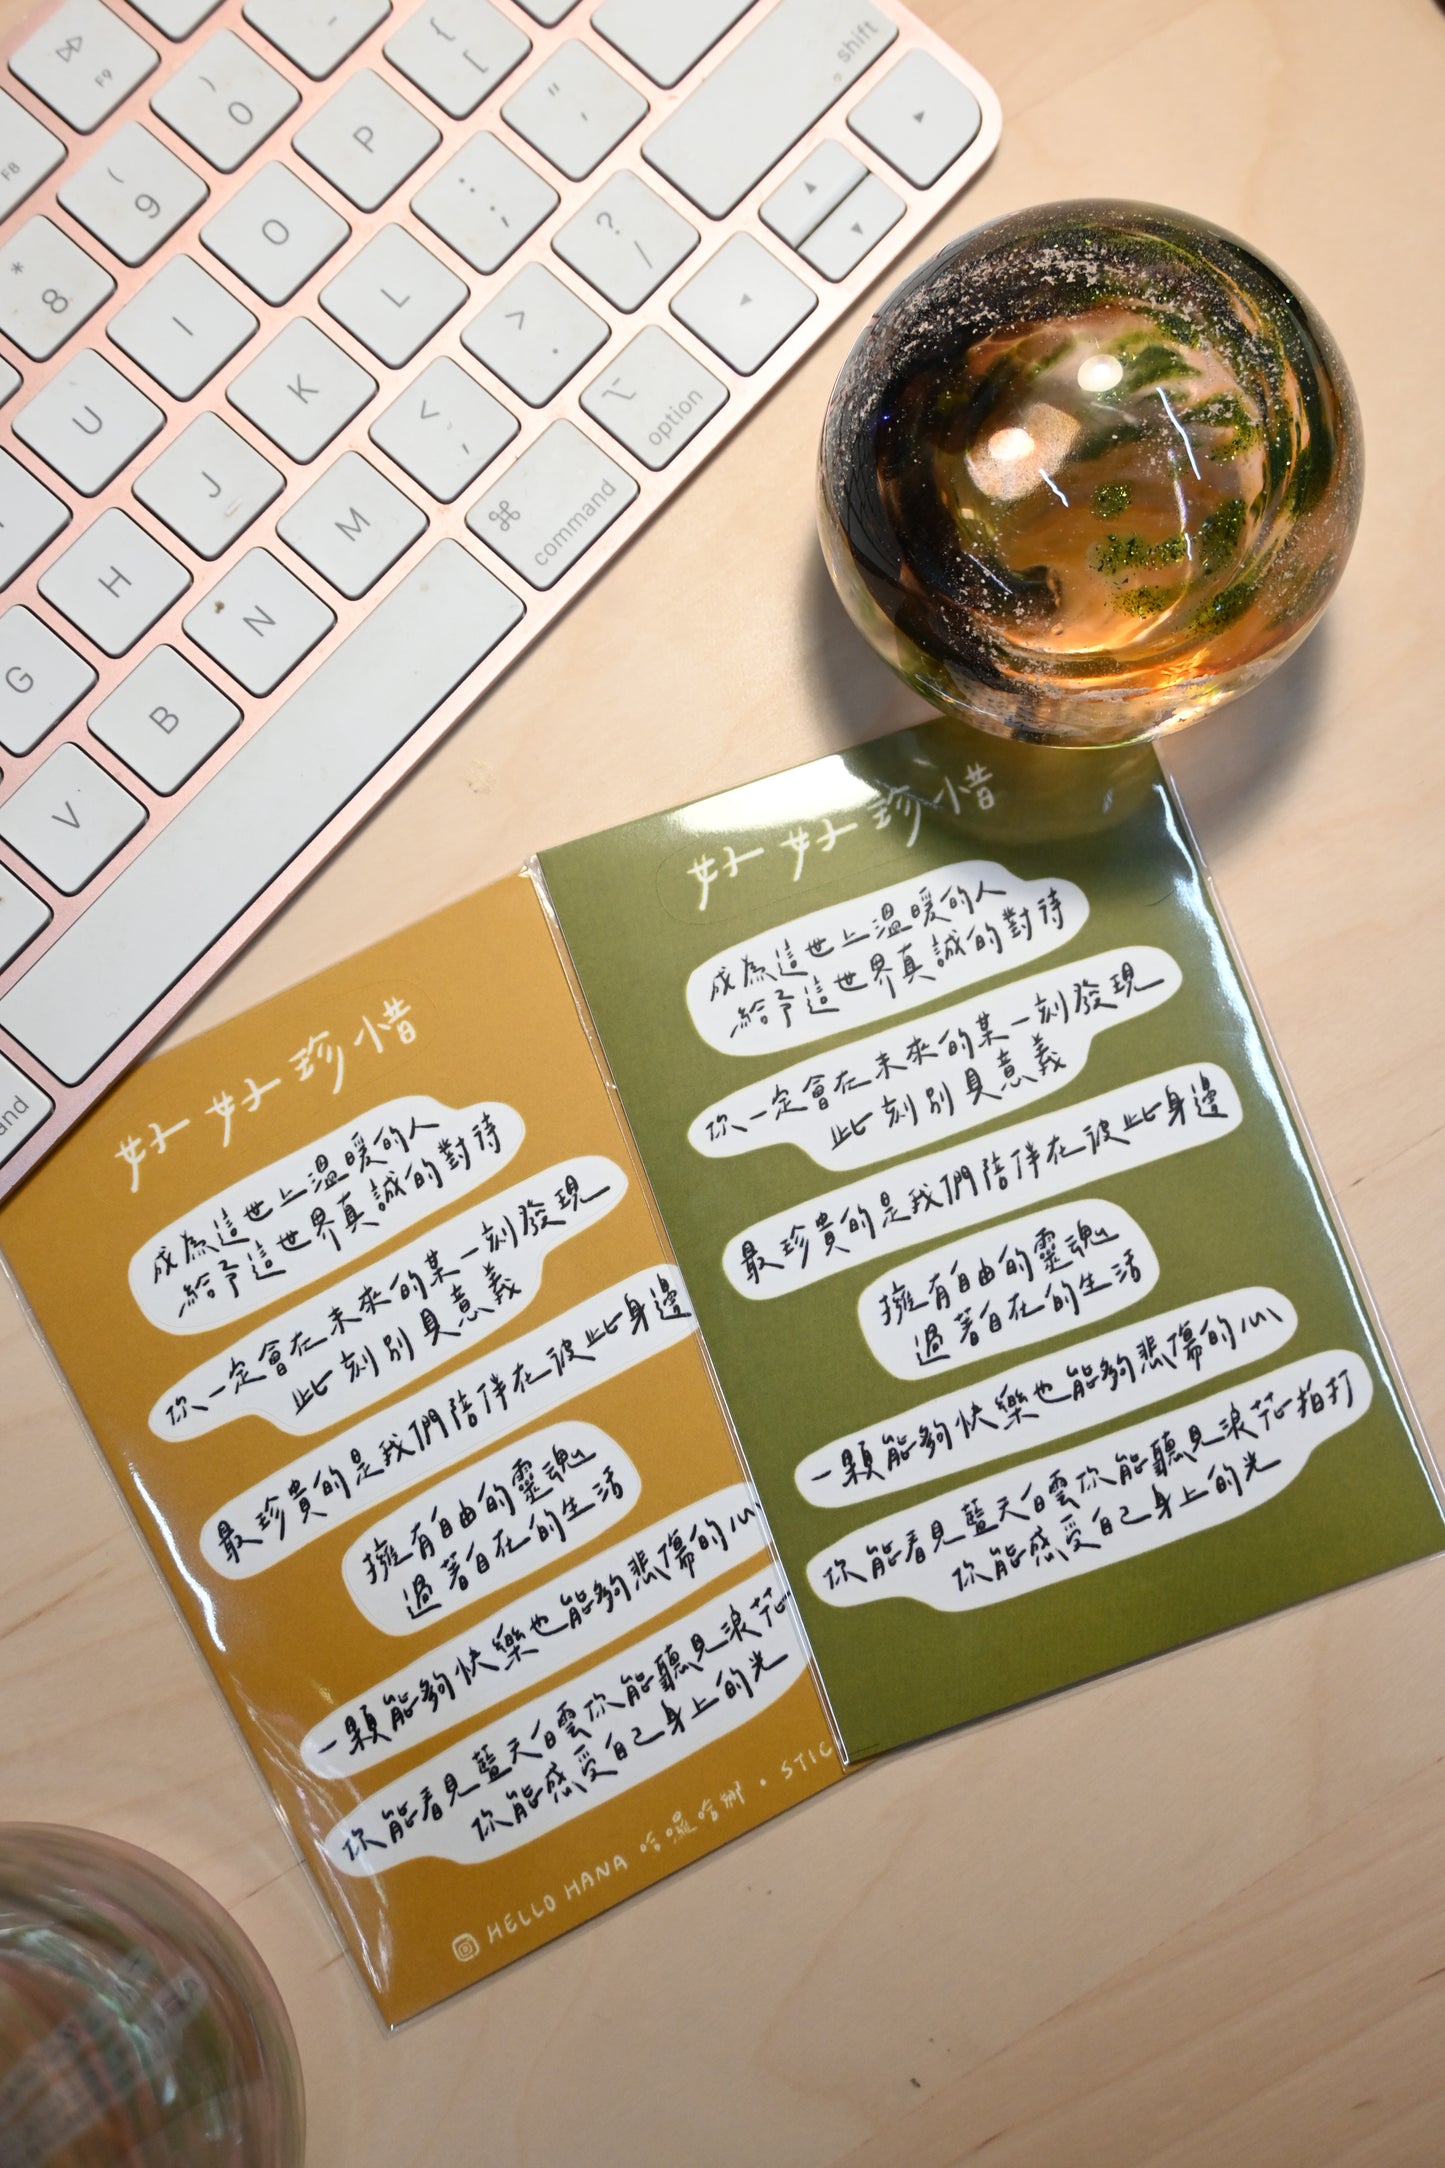 F9
F8
)
0
P
{
[
"
'
shift
(
9
O
:
;
?
/
*
8
I
L
>
.
U
K
<
,
option
J
M
⌘
command
H
N
G
B
V
好好珍惜
成為這世上溫暖的人
給予這世界真誠的對待
你一定會在未來的某一刻發現
此刻別具意義
最珍貴的是我們陪伴在彼此身邊
擁有自由的靈魂
過著自在的生活
一顆能夠快樂也能夠悲傷的心
你能看見藍天白雲你能聽見浪花
你能感受自己身上的光
HELLO HANA 哈囉哈娜 • STIC
好好珍惜
成為這世上溫暖的人
給予這世界真誠的對待
你一定會在未來的某一刻發現
此刻別具意義
最珍貴的是我們陪伴在彼此身邊
擁有自由的靈魂
過著自在的生活
一顆能夠快樂也能夠悲傷的心
你能看見藍天白雲你能聽見浪花拍打
你能感受自己身上的光